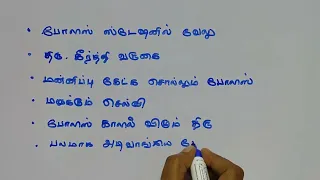 போலஸ் ஸ்டேஷனில் வேலு
திரு. கீர்த்தி வருகை
மன்னிப்பு கேட்க சொல்லும் போலஸ்
மறுக்கும் செல்வி
போலஸ் காலல் விடும் திரு
பலமாக அடிவாங்கிய